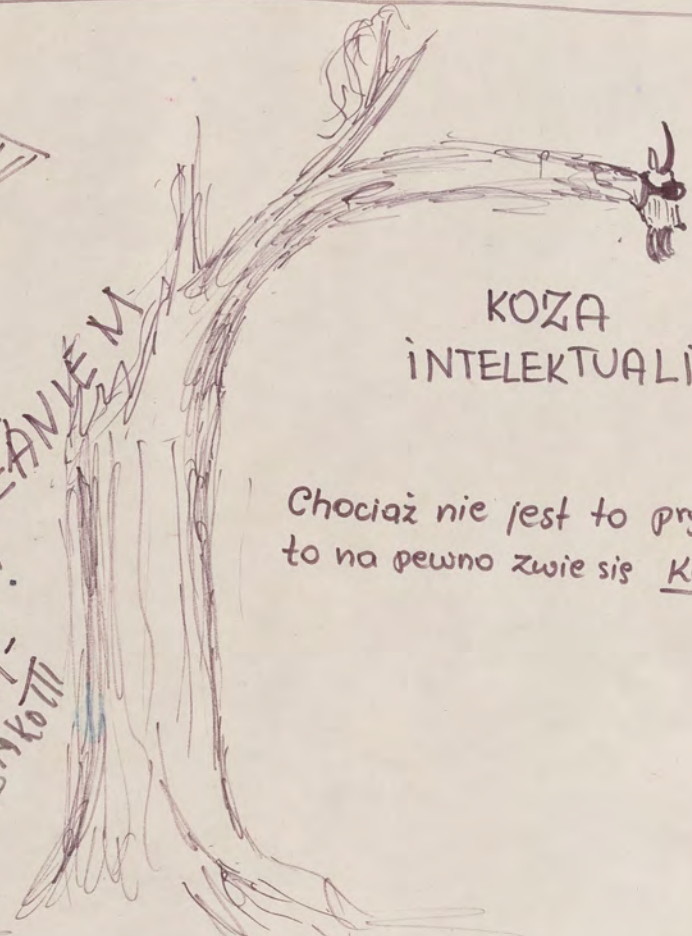 KOZA
INTELEKTUALI
Chociaż nie jest to pry
to na pewno zwie się K